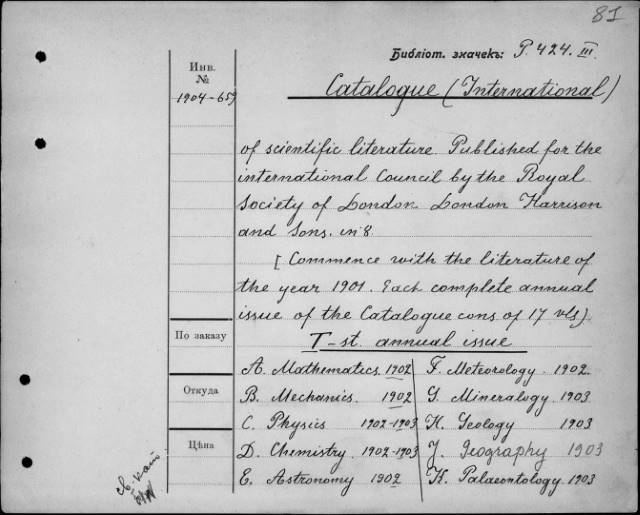 81
Библіот. значекъ: P. 424. III.
Инв.
№
1904-659
Catalogue (International)
of scientific literature Published for the
international Council by the Royal
Society of London. London Harrison
and Sons. in 8.
[Commence with the literature of
the year 1901. Each complete annual
issue of the Catalogue cons of 17 vls)
I-st. annual issue
По заказу
Откуда
Цѣна
A. Mathematics 1902
B. Mechanics. 1902
C. Physics 1902-1903
D. Chemistry. 1902-1903
E. Astronomy 1902
F. Meteorology. 1902
G. Mineralogy. 1903
H. Geology 1903
J. Geography 1903
K. Palaeontology. 1903